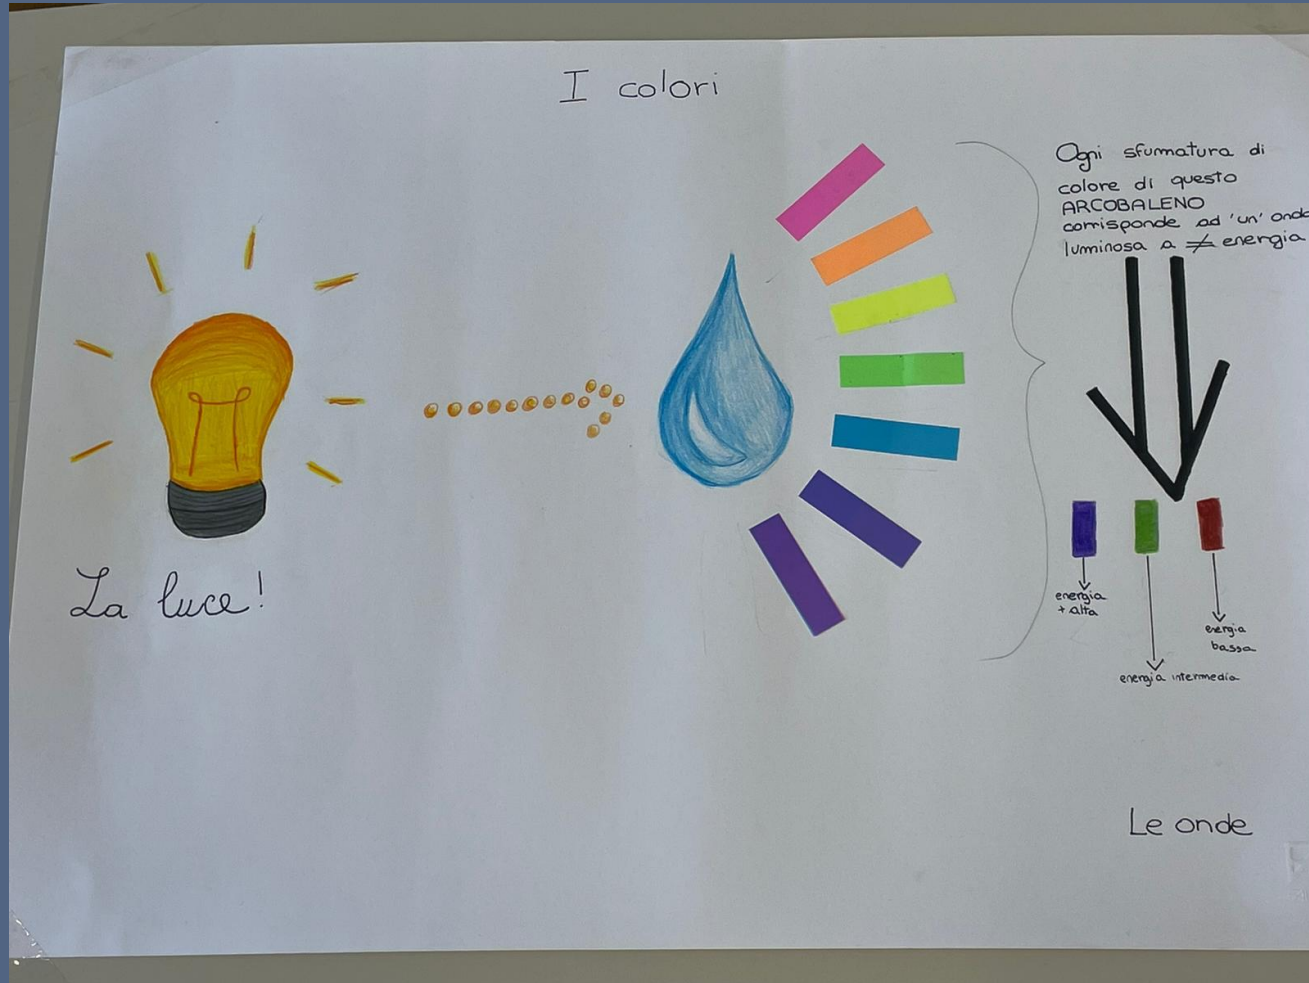 I colori
Ogni sfumatura di
colore di questo
ARCOBALENO
corrisponde ad 'un' onda
luminosa a ≠ energia
energia
+ alta
energia
bassa
energia intermedia
La luce!
Le onde